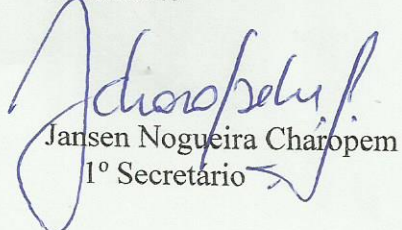 Jansen Nogueira Charopem
1º Secretário